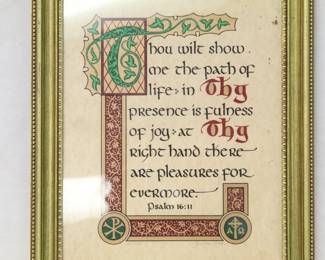 Thou wilt show
me the path of
life in Thy
presence is fulness
of joy at Thy
right hand there
are pleasures for
evermore
Psalm 16:11
Α Ω